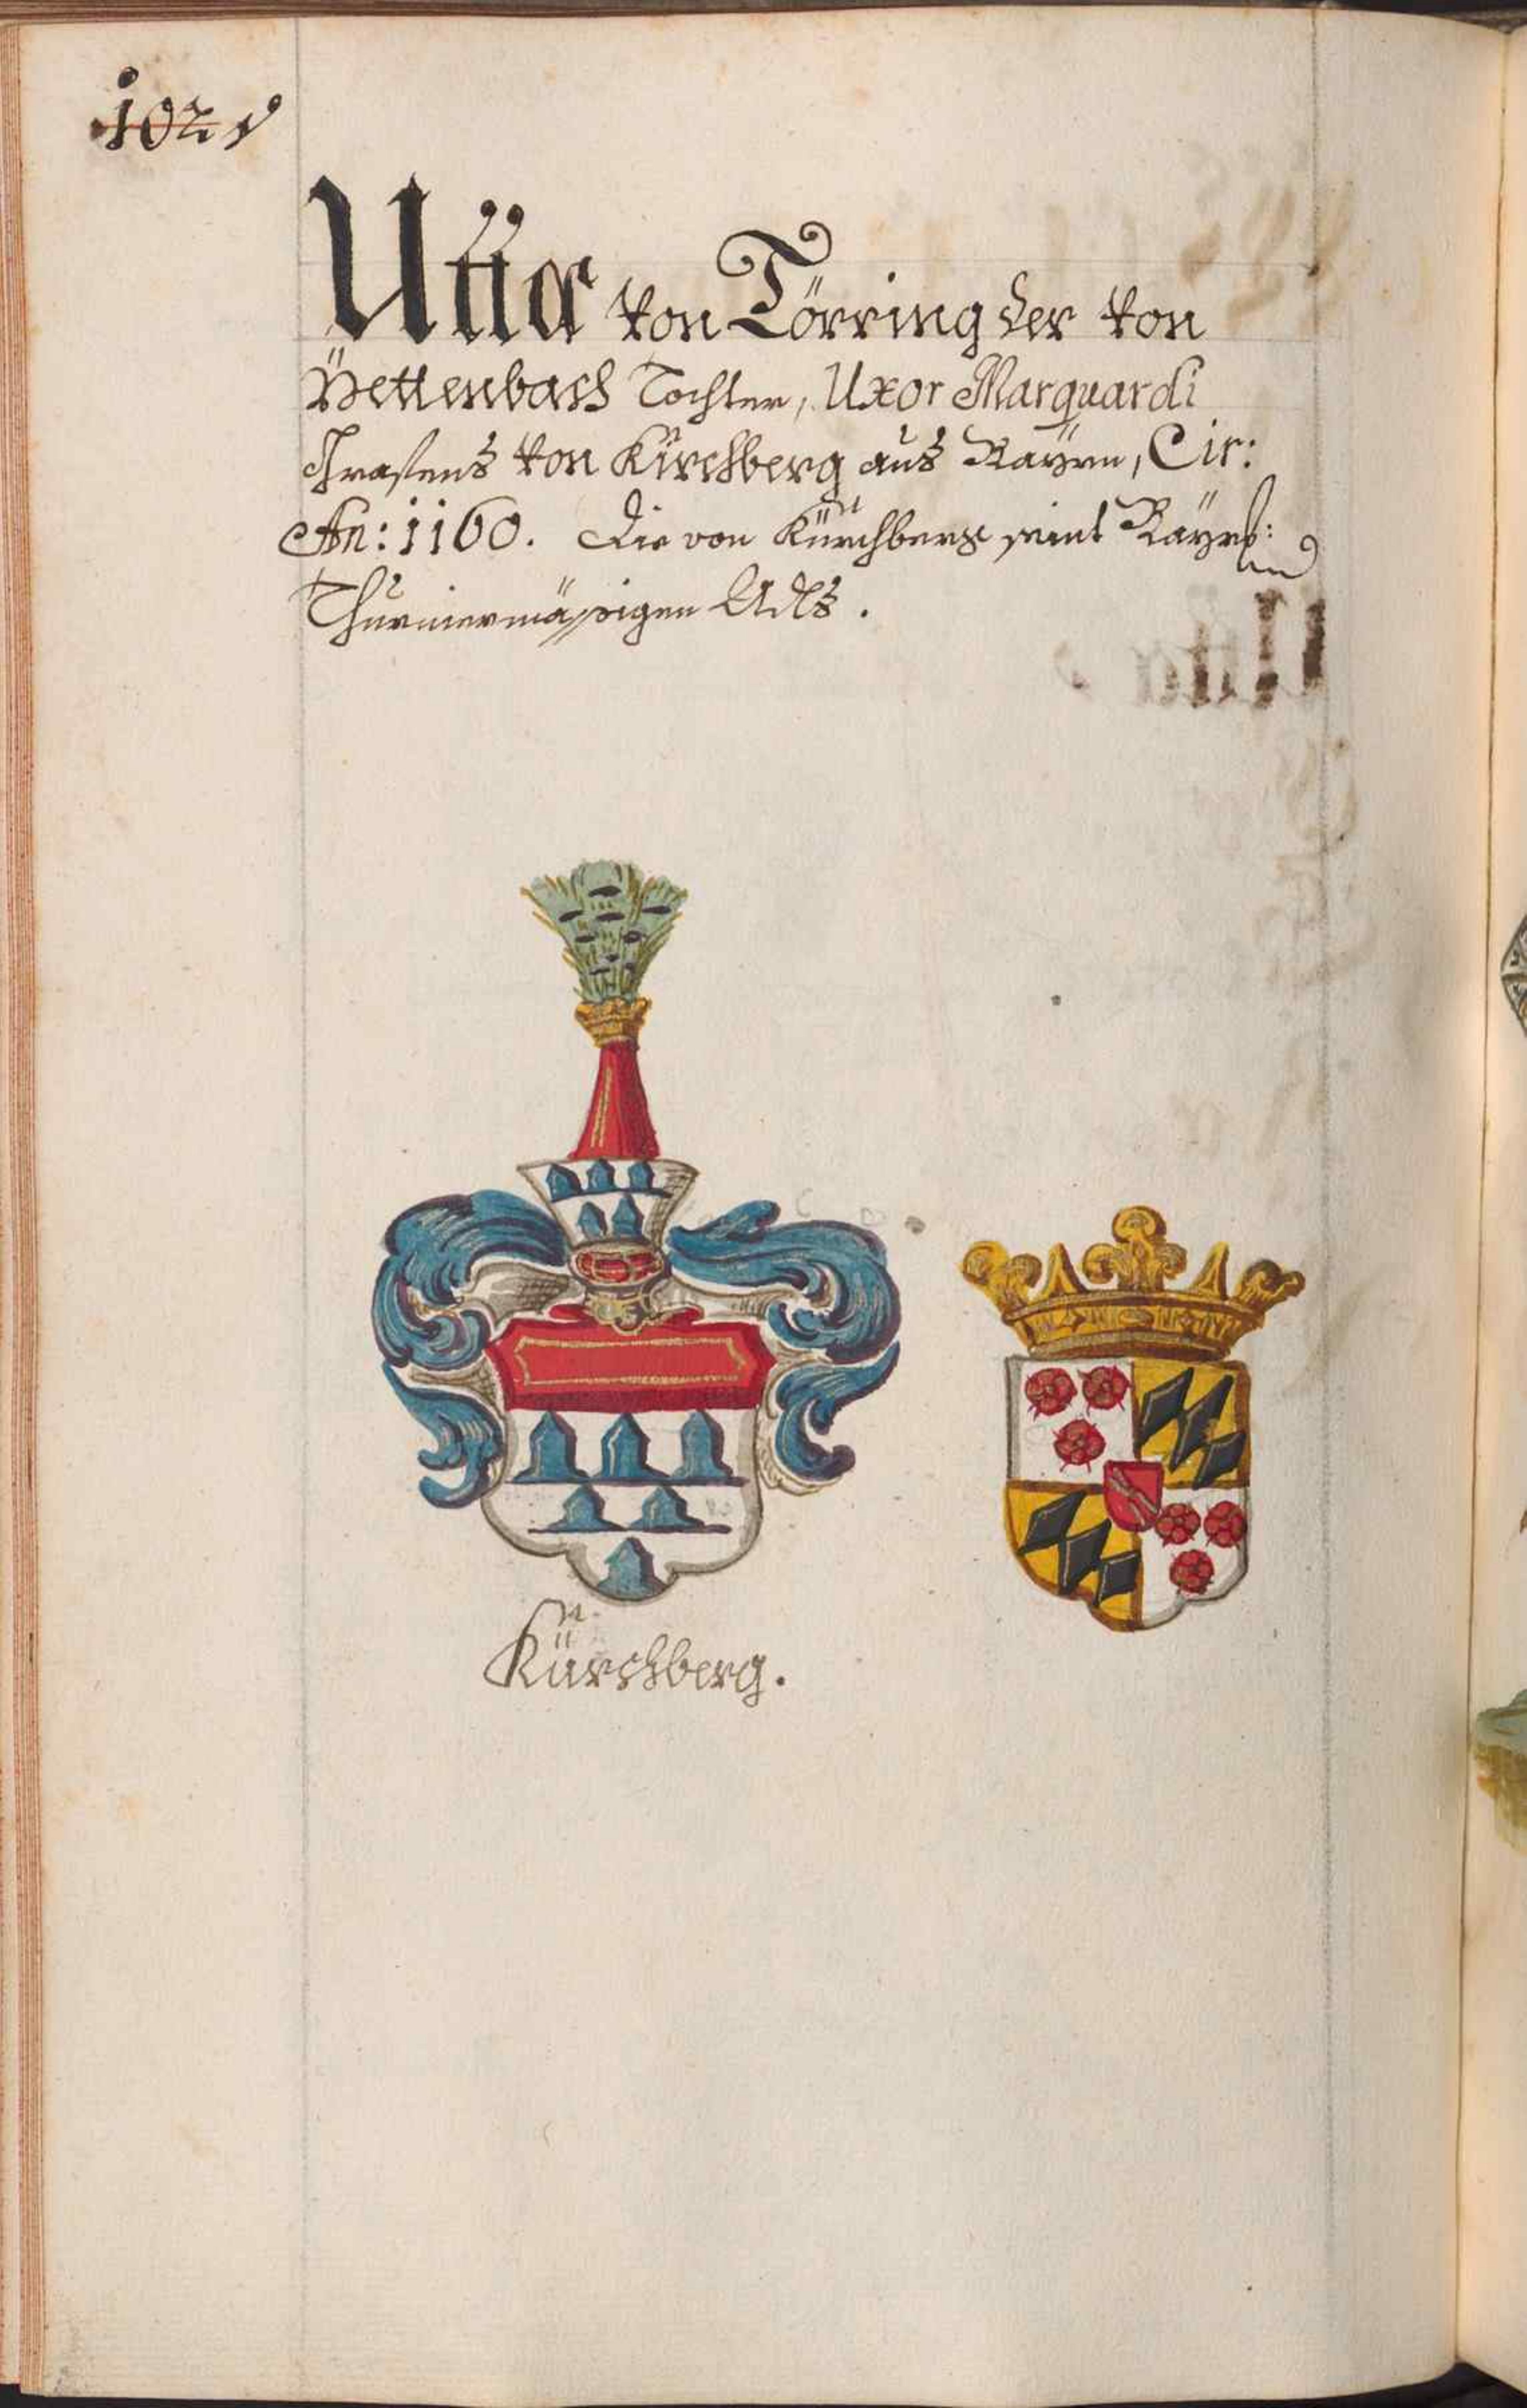 1021
Utta von Törring der von
Pettenbach Tochter, Uxor Marquardi
von Kirchberg aus Bayrn, Cir:
An: 1160. Die von Kürchberg seint Bayrl: und
Thurniermässigen Adls.
Kürchberg.